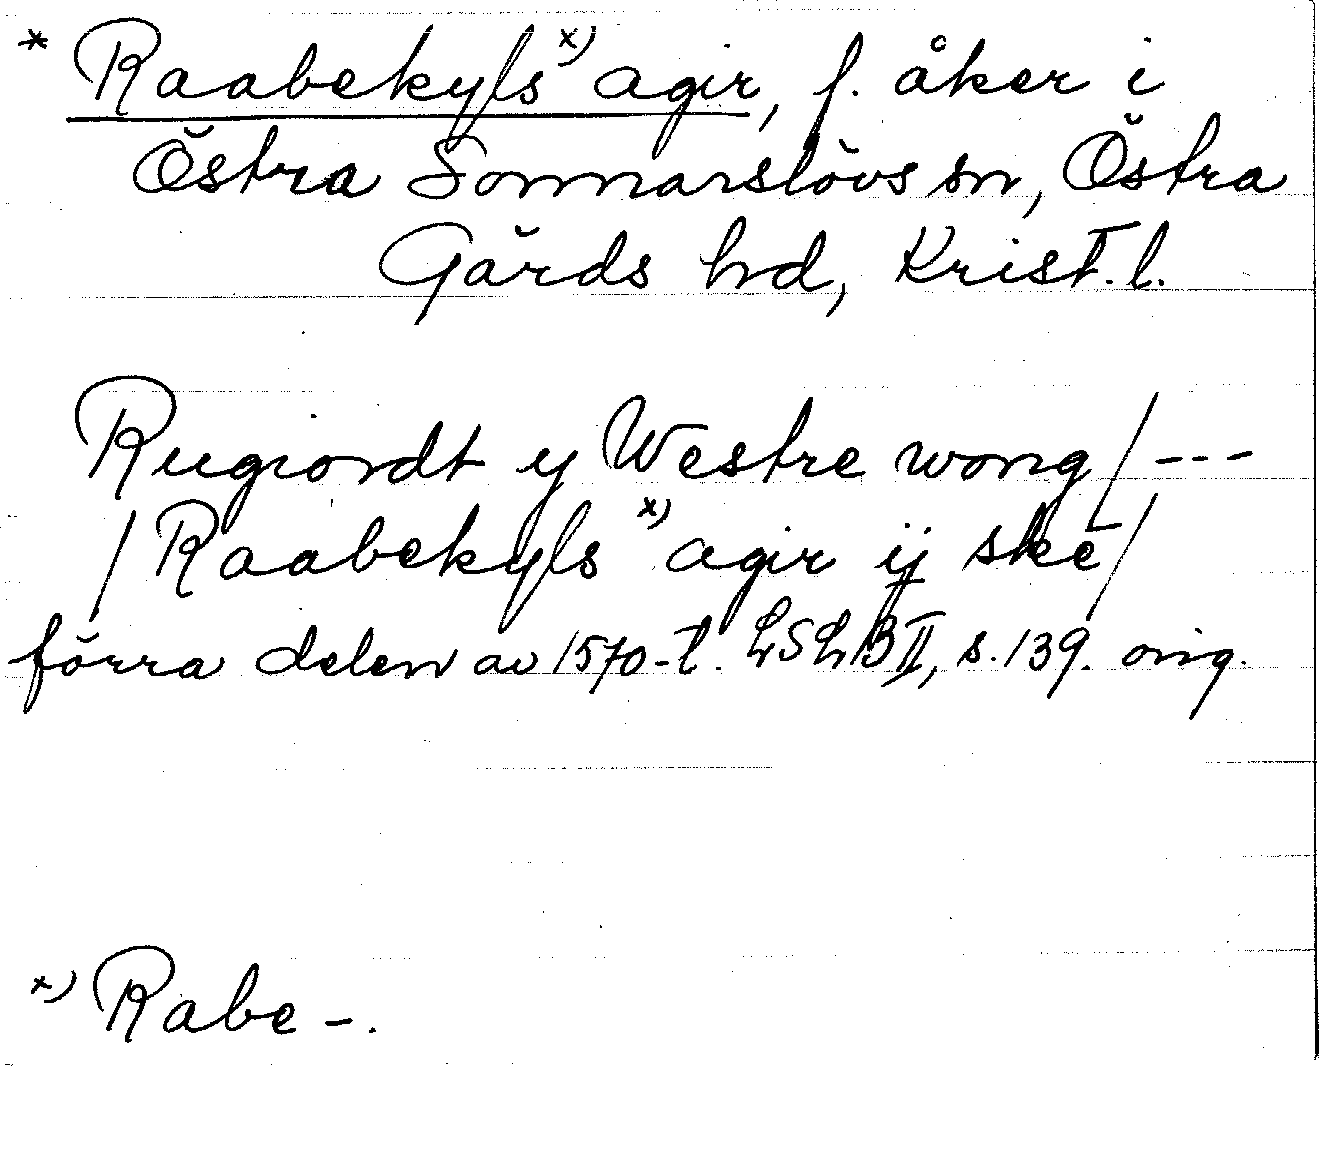 * Raabekyls x) agir, f. åker i
Östra Sönnarslövs sn, Östra
Gärds hd, Krist. l.
Rugiordt y Westre wong / ---
/ Raabekyls x) agir ij ske /
förra delen av 1570-t. LSLB II, s. 139. orig.
x) Rabe -.